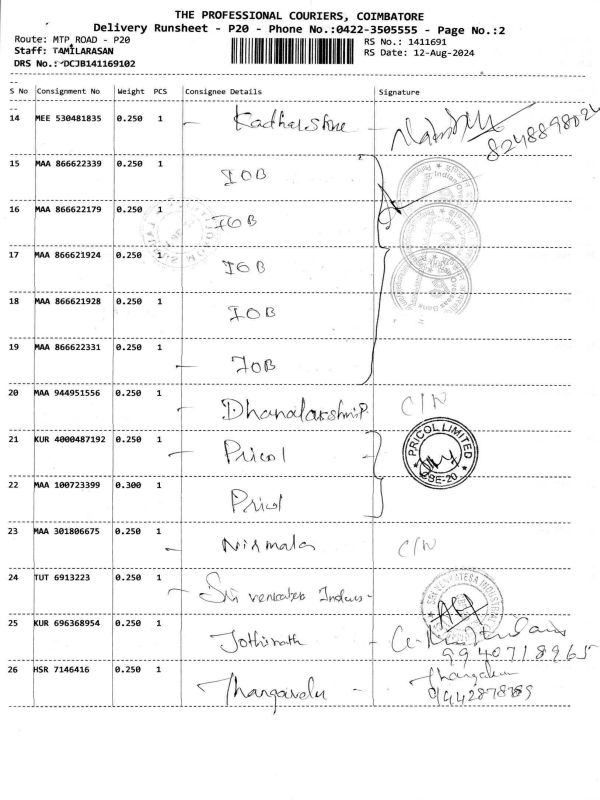 THE PROFESSIONAL COURIERS, COIMBATORE
Delivery Runsheet - P20 - Phone No.:0422-3505555 - Page No.:2
Route: MTP ROAD - P20 RS No.: 1411691
Staff: TAMILARASAN RS Date: 12-Aug-2024
DRS No.: DCJB141169102
S No Consignment No Weight PCS Consignee Details Signature
14 MEE 530481835 0.250 1
15 MAA 866622339 0.250 1 IOB
16 MAA 866622179 0.250 1 IOB
17 MAA 866621924 0.250 1 IOB
18 MAA 866621928 0.250 1 IOB
19 MAA 866622331 0.250 1 IOB
20 MAA 944951556 0.250 1 Dhanalakshmi.P. C/N
21 KUR 4000487192 0.250 1 Pricol PRICOL LIMITED CBE-20
22 MAA 100723399 0.300 1 Pricol
23 MAA 301806675 0.250 1 Nirmala C/N
24 TUT 6913223 0.250 1 Sri venkates Indus
25 KUR 696368954 0.250 1 Jothinath
9940718965
26 HSR 7146416 0.250 1 Thangavelu
9442878789